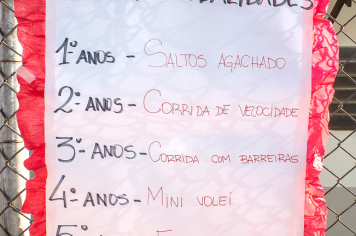 1º ANOS - SALTOS AGACHADO
2º ANOS - CORRIDA DE VELOCIDADE
3º ANOS - CORRIDA COM BARREIRAS
4º ANOS - MINI VOLEI
5º ANOS -